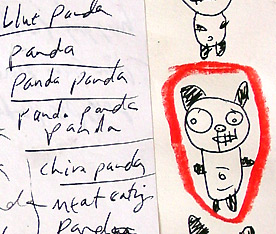 llut panda
panda
panda panda
panda panda
panda
china panda
meat eating
Panda